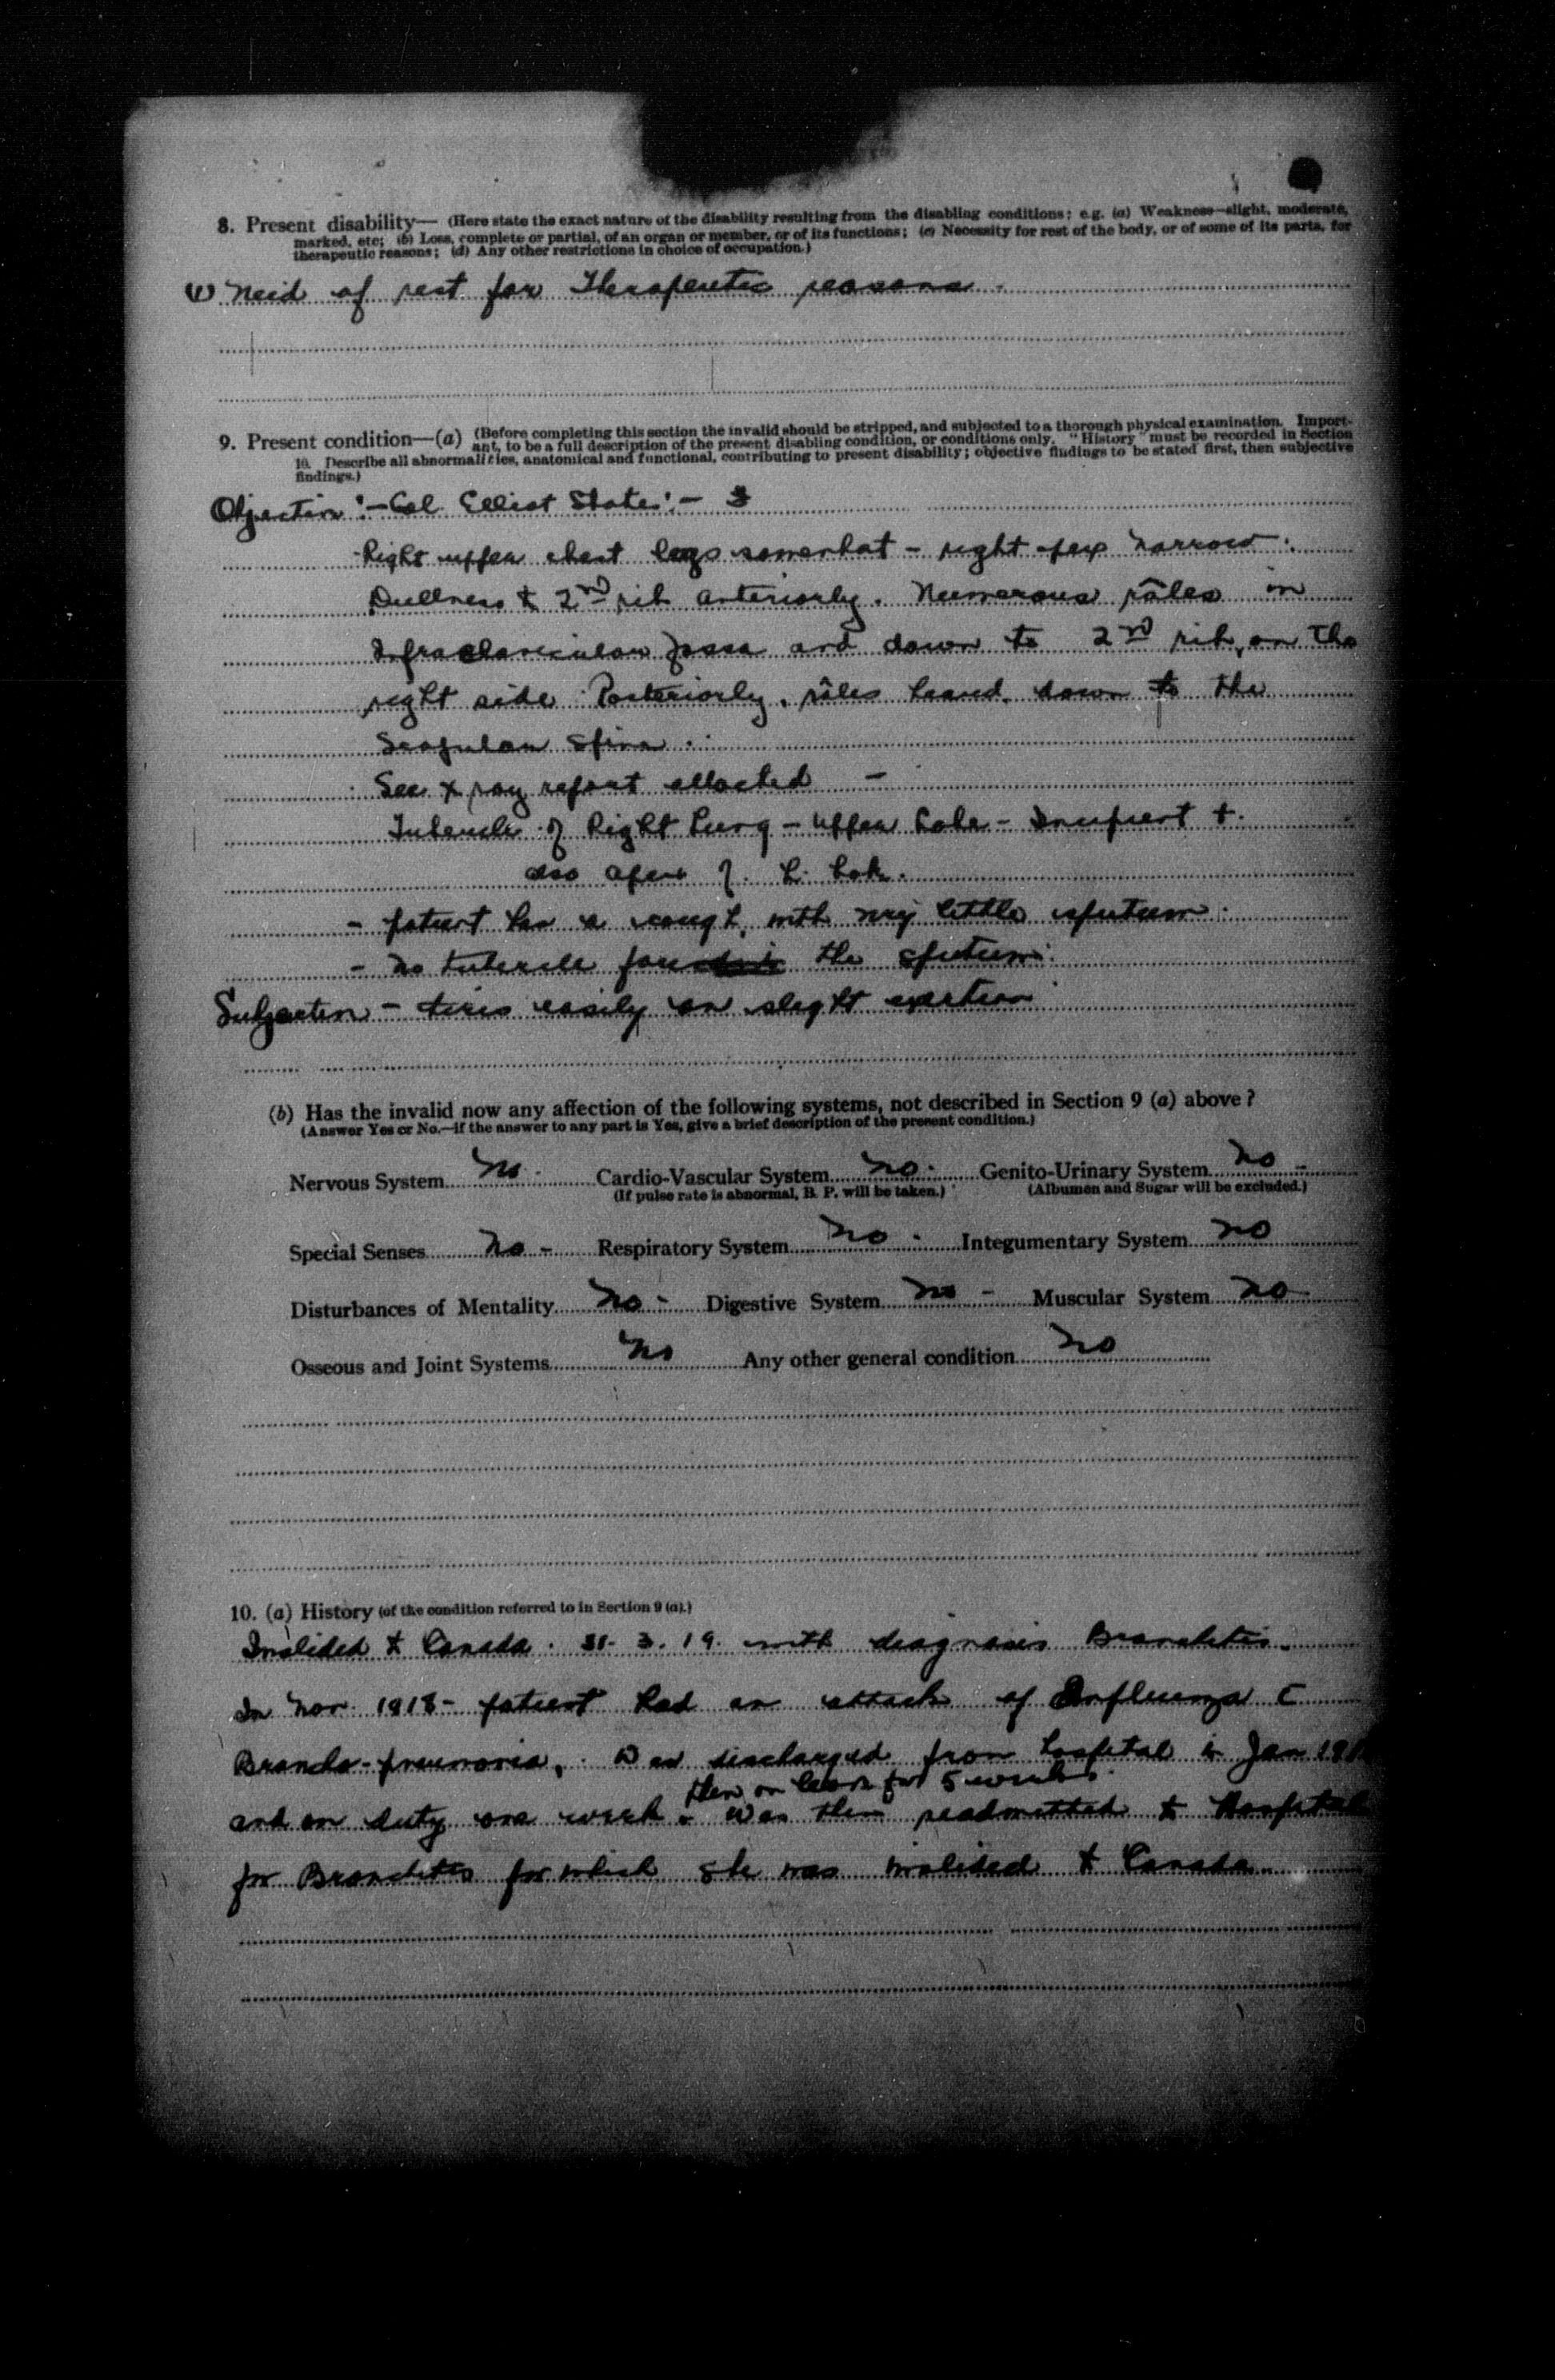 8. Present disability— (Here state the exact nature of the disability resulting from the disabling conditions; e.g. (a) Weakness—slight, moderate,
marked, etc; (b) Loss, complete or partial, of an organ or member, or of its functions; (c) Necessity for rest of the body, or of some of its parts, for
therapeutic reasons; (d) Any other restrictions in choice of occupation.)
(1) Need of rest for Therapeutic reasons.
9. Present condition—(a) (Before completing this section the invalid should be stripped, and subjected to a thorough physical examination. Import-
ant, to be a full description of the present disabling condition, or conditions only. "History" must be recorded in Section
10. Describe all abnormalities, anatomical and functional, contributing to present disability; objective findings to be stated first, then subjective
findings.)
Objective:- Col Elliot States:-
Right upper chest lags somewhat - right apex narrow.
Dullness to 2nd rib anteriorly. Numerous râles in
Infraclavicular fossa and down to 2nd rib, on the
right side Posteriorly, râles heard down to the
Scapular spine.
See X ray report attached -
Tubercle of Right Lung - upper Lobe - Incipient +
also apex of L. Lobe.
- patient has a cough, with very little sputum.
- no tubercle found in the sputum.
Subjective - tires easily on slight exertion
(b) Has the invalid now any affection of the following systems, not described in Section 9 (a) above?
(Answer Yes or No.—if the answer to any part is Yes, give a brief description of the present condition.)
Nervous System no. Cardio-Vascular System no. Genito-Urinary System no -
(If pulse rate is abnormal, B. P. will be taken.) (Albumen and Sugar will be excluded.)
Special Senses no - Respiratory System no. Integumentary System no
Disturbances of Mentality no - Digestive System no - Muscular System no
Osseous and Joint Systems no Any other general condition no
10. (a) History (of the condition referred to in Section 9 (a).)
Invalided to Canada. 31. 3. 19. with diagnosis Bronchitis.
In Nov. 1918 - patient had an attack of Influenza c
Broncho-pneumonia, Was discharged from hospital in Jan
then on leave for 5 weeks.
and on duty one week. Was then readmitted to Hospital
for Bronchitis for which she was invalided to Canada.